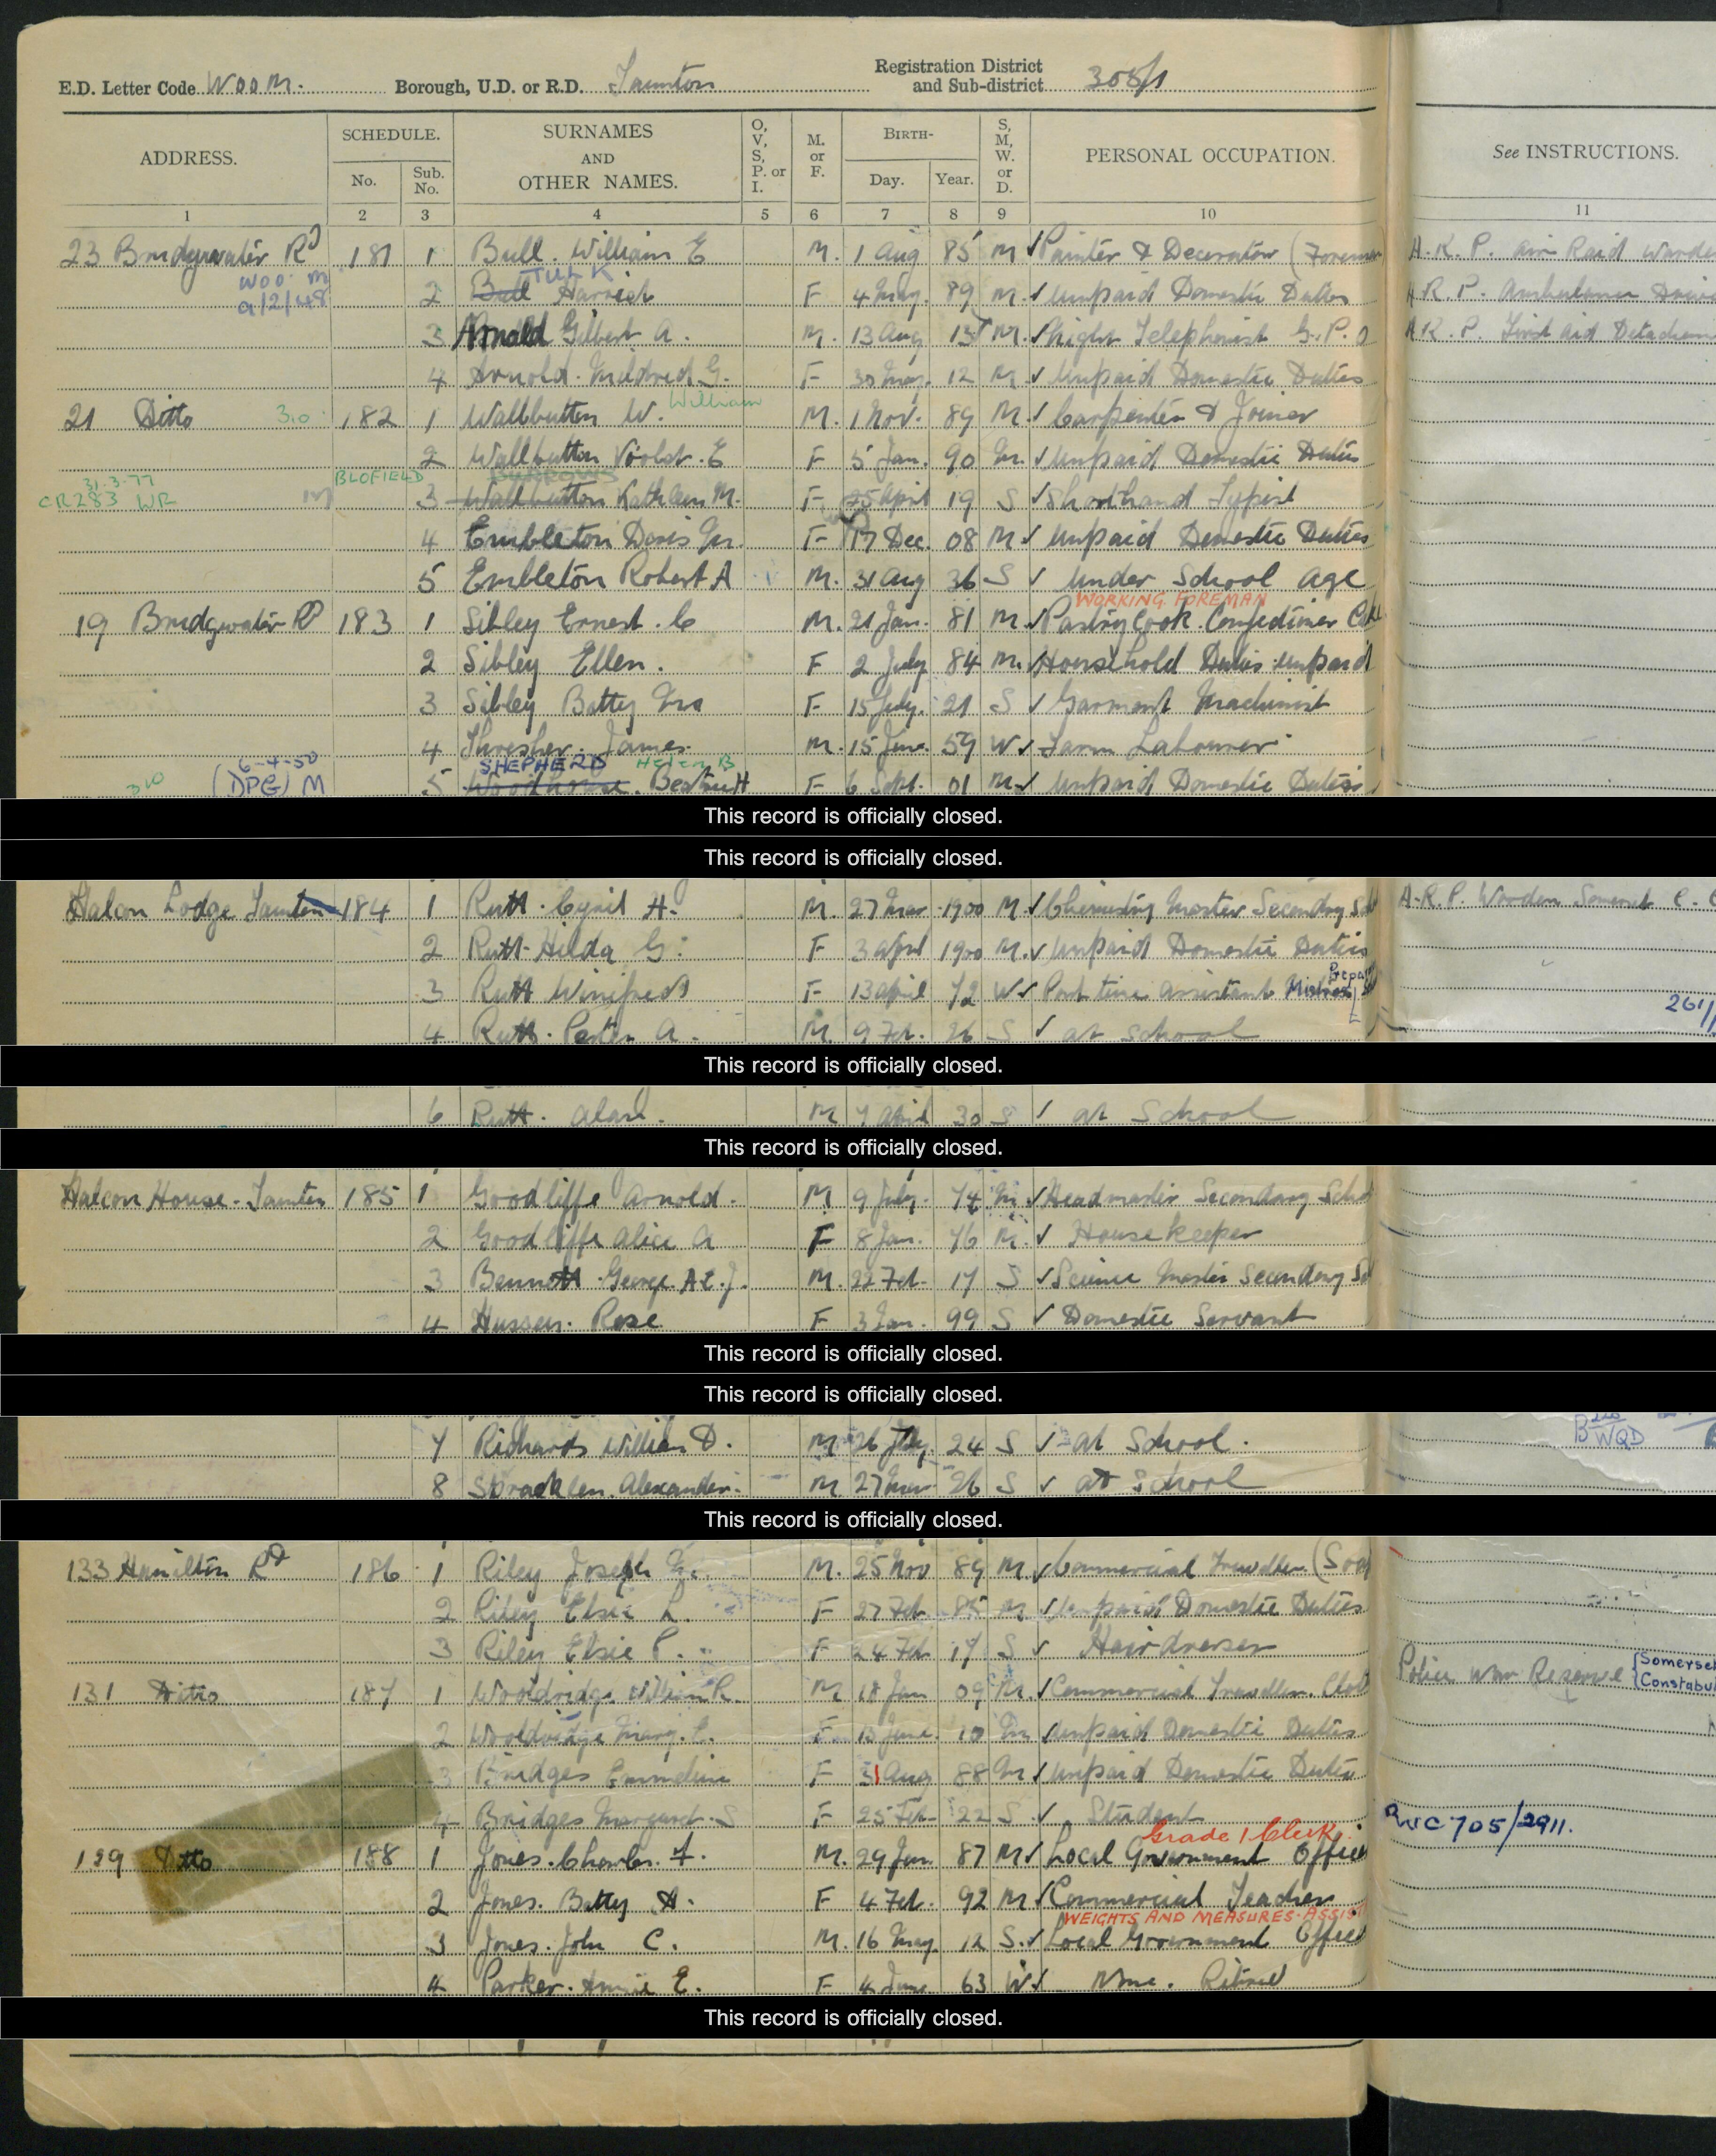 E.D. Letter Code WOOM. Borough, U.D. or R.D. Taunton Registration District and Sub-district 308/1
ADDRESS. SCHEDULE. No. Sub. No. SURNAMES AND OTHER NAMES. O, V, S, P. or I. M. or F. BIRTH- Day. Year. S, M, W. or D. PERSONAL OCCUPATION. See INSTRUCTIONS.
1 2 3 4 5 6 7 8 9 10 11
23 Bridgwater Rd 181 1 Bull. William E M. 1 Aug 85 M ✓ Painter & Decorator (Foreman A.R.P. Air Raid Warden
TULK
WOO. M 9/2/48 2 Bull Harriet F 4 May. 89 M ✓ Unpaid Domestic Duties A.R.P. Ambulance
3 Arnold Gilbert A. M. 13 Aug 13 M. ✓ Night Telephonist G.P.O A.R.P. First Aid
4 Arnold. Mildred G. F 30 12 M ✓ Unpaid Domestic Duties
William
21 Ditto 182 1 Wallbutton W. M. 1 Nov. 89 M ✓ Carpenter & Joiner
2 Wallbutton Violet. E F 5 Jan. 90 M. ✓ Unpaid Domestic Duties
BLOFIELD BURROWS
31-3-77 CR283 WR 3 Wallbutton Kathleen M. F 25 April 19 S ✓ Shorthand Typist
4 Embleton Doris M. F 17 Dec. 08 M ✓ Unpaid Domestic Duties
5 Embleton Robert A M. 31 Aug 36 S ✓ Under School Age
WORKING FOREMAN
19 Bridgwater Rd 183 1 Sibley Ernest. C M. 21 Jan. 81 M ✓ Pastrycook. Confectioner
2 Sibley Ellen. F 2 July 84 M. ✓ Household Duties unpaid
3 Sibley Betty F 15 July. 21 S ✓ Garment Machinist
4 Thresher. James. M. 15 June 59 W ✓ Farm Labourer
SHEPHERD Helen B
6-4-50 (DPG) M 5 Woodhouse. F 6 Sept. 01 M ✓ Unpaid Domestic Duties
This record is officially closed.
This record is officially closed.
Halcon Lodge Taunton 184 1 Rutt. Cyril H. M. 27 Mar 1900 M ✓ Chemistry Master Secondary A.R.P. Warden Somerset C.C
2 Rutt Hilda G. F 3 April 1900 M. ✓ Unpaid Domestic Duties
3 Rutt Winifred F 13 April 72 W ✓ Part time assistant Mistress
261/
4 Rutt. Peter A. M. 9 Feb. 26 S ✓ at school
This record is officially closed.
6 Rutt. Alan. M 7 April 30 S ✓ at School
This record is officially closed.
Halcon House. Taunton 185 1 Goodliffe Arnold. M 9 July. 74 M. ✓ Headmaster Secondary
2 Goodliffe Alice A F 8 Jan. 76 M. ✓ Housekeeper
3 Bennett. George. A.E.J. M. 22 Feb. 17 S ✓ Science Master Secondary
4 Hussey. Rose F 3 Jan. 99 S ✓ Domestic Servant
This record is officially closed.
This record is officially closed.
7 Richards William D. M. 26 July. 24 S ✓ at School.
8 Spracklen. Alexander. M. 27 Mar 26 S ✓ at School
This record is officially closed.
133 Hamilton Rd 186 1 Riley Joseph M. 25 Nov 89 M. ✓ Commercial Traveller
2 Riley Elsie L. F 27 Feb. 85 M ✓ Unpaid Domestic Duties
3 Riley Elsie P. F 24 Feb 17 S ✓ Hairdresser
131 Ditto 187 1 Wooldridge William R. M 18 Jan 09 M. ✓ Commercial Traveller. Police War Reserve {Somerset Constabul
2 Wooldridge Mary. E. F 13 June 10 M ✓ Unpaid Domestic Duties
3 Bridges Emmeline F 31 Aug 88 M ✓ Unpaid Domestic Duties
4 Bridges Margaret. S F 25 Feb 22 S ✓ Student
Grade 1 Clerk. 705/2911.
129 Ditto 188 1 Jones. Charles. F. M. 29 Jan 87 M ✓ Local Government Officer
2 Jones. Betty A. F 4 Feb. 92 M ✓ Commercial Teacher
WEIGHTS AND MEASURES. ASSIST
3 Jones. John C. M. 16 May 12 S. ✓ Local Government Officer
4 Parker. Annie E. F 4 June 63 W ✓ Retired
This record is officially closed.